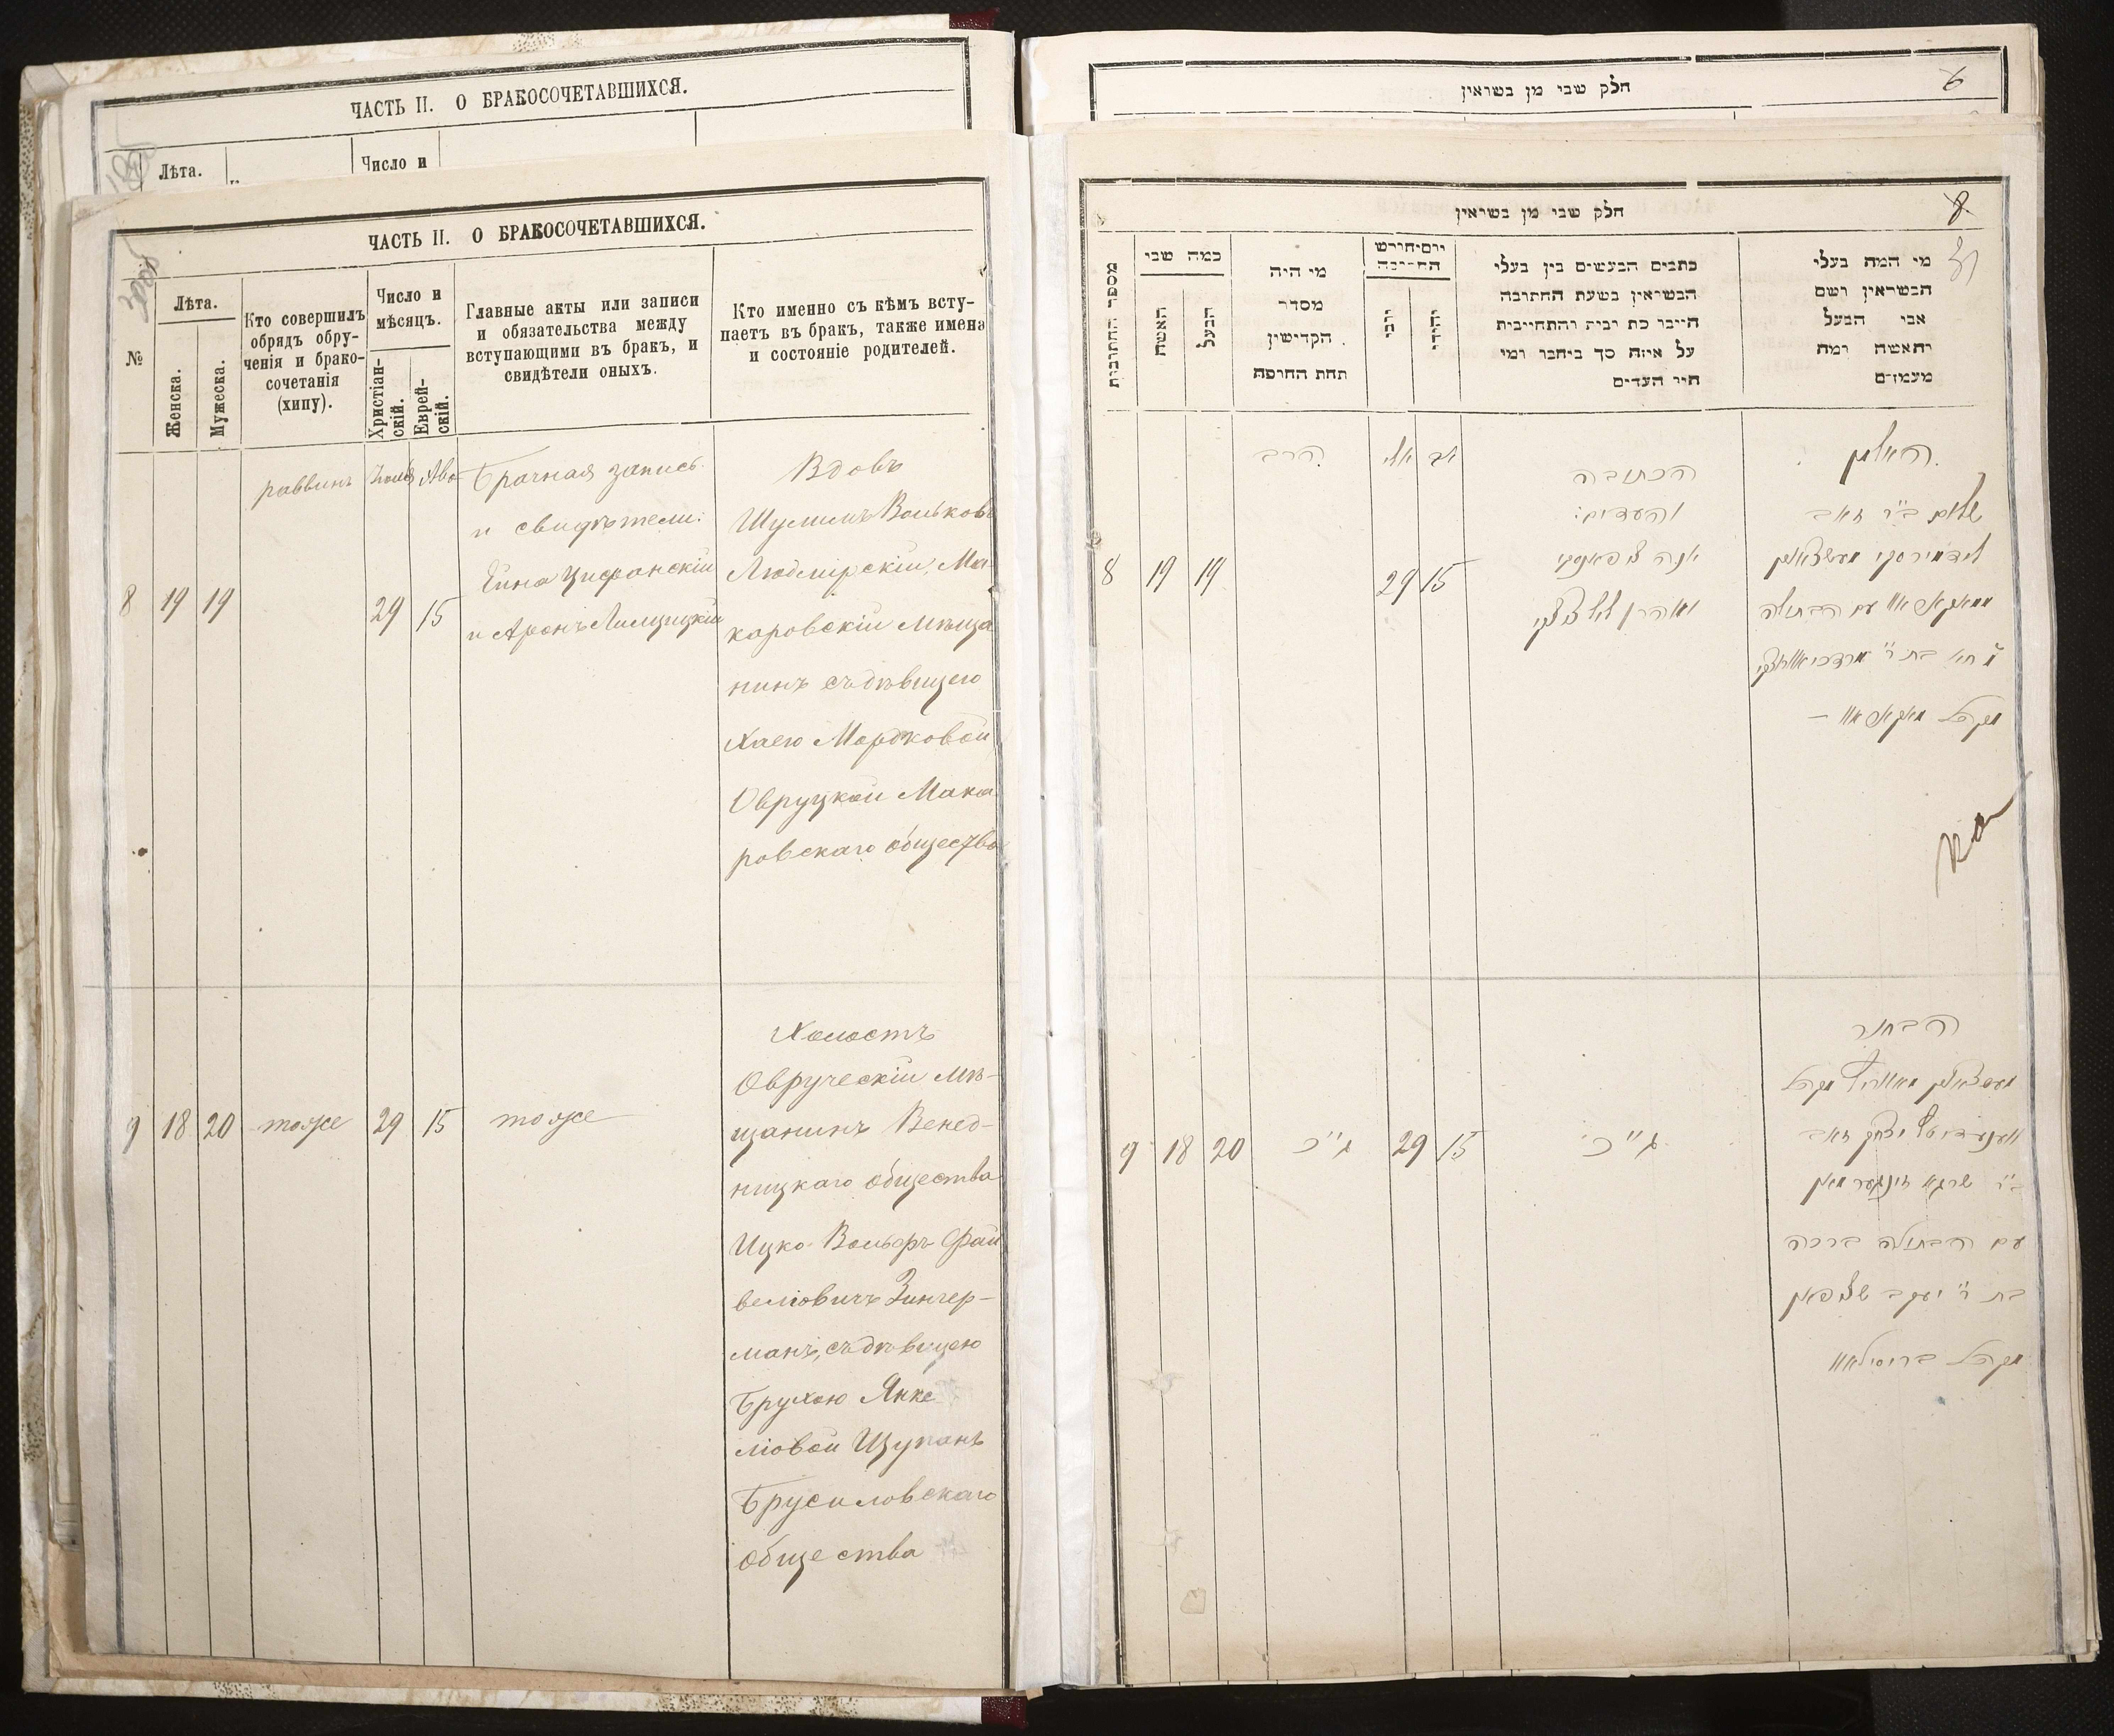 ЧАСТЬ II. О БРАКОСОЧЕТАВШИХСЯ.
Лѣта.
Число и
ЧАСТЬ II. О БРАКОСОЧЕТАВШИХСЯ.
№
Лѣта.
Женска.
Мужеска.
Кто совершилъ
обрядъ обру-
ченія и брако-
сочетанія
(хипу).
Число и
мѣсяцъ.
Христіан-
скій.
Еврей-
скій.
Главные акты или записи
и обязательства между
вступающими въ бракъ, и
свидѣтели оныхъ.
Кто именно съ кѣмъ всту-
паетъ въ бракъ, также имена
и состояніе родителей.
8
19
19
раввинъ
29
Ава
15
Брачная запись
и свидѣтели:
и Аронъ
Вдовъ
Шулимъ Вольковъ
Людмірскій Ма-
каровскій мѣща
нинъ съ дѣвицею
Хаею Мордковой
Овруцкой Мака
ровскаго общества
9
18
20
тоже
29
15
тоже
Холостъ
Овручскій мѣ-
щанинъ Венед-
ницкаго общества
Ицко-Вольфъ Фай
веліовичъ Зингер-
манъ, съ дѣвицею
Брухою Янке
ліовой Щупакъ
Брусиловскаго
общества
חלק שבי מן בשראין
6
חלק שבי מן בשראין
8
מספר החתובית
כמה שבי
האשה
הבעל
מי היה
מסדר
הקדישין
תחת החופה
יום וחורש
החריבה
יהודי
כתבים הבעשים בין בעלי
הבשראין בשעת החתובה
הייבו כת יבית והתחייבית
על איזה סך ביחבר ומי
היו העדים
מי המה בעלי
הבשראין ושם
אבי הבעל
והאשה ומה
מעמדם
8
19
19
הרב
29
אב
15
הכתובה
והעדים:
האלמן
שלום ב״ר זאב
עם הבתולה
חי׳ בת ר׳ מרדכי
מקהל מאקאראוו –
9
18
20
ג״כ
29
15
ג״כ
הבחור
יצחק זאב
ב״ר שרגא זינגערמאן
עם הבתולה ברכה
בת ר׳ יעקב
מקהל ברוסילאוו